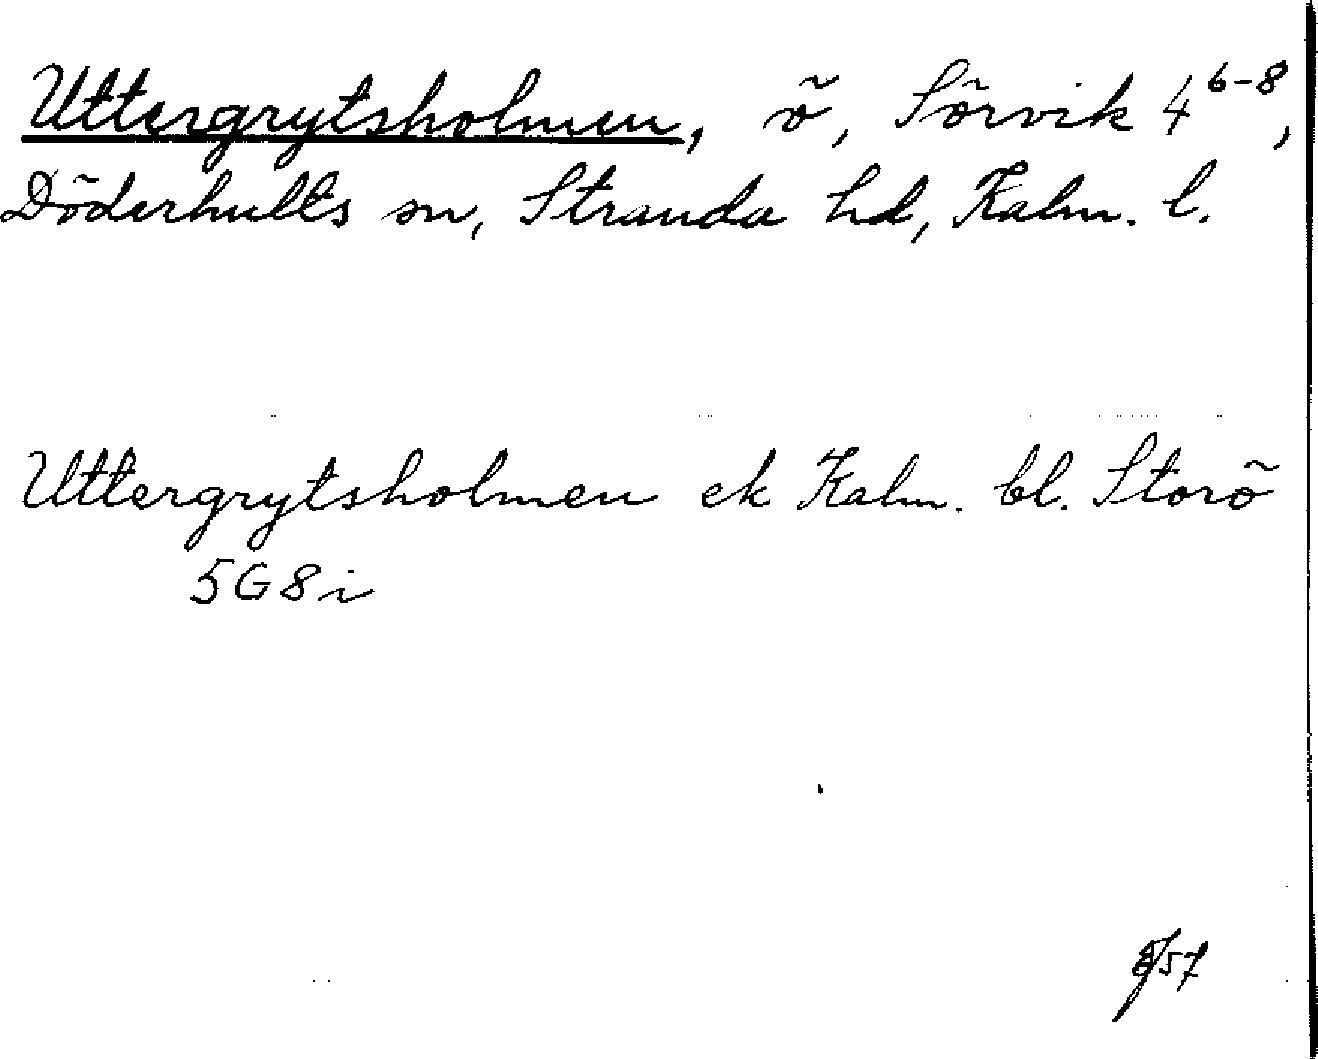 Uttergrytsholmen, ö, Sörvik 4⁶⁻⁸,
Döderhults sn, Stranda hd, Kalm. l.
Uttergrytsholmen ek Kalm. bl. Storö
5G8i